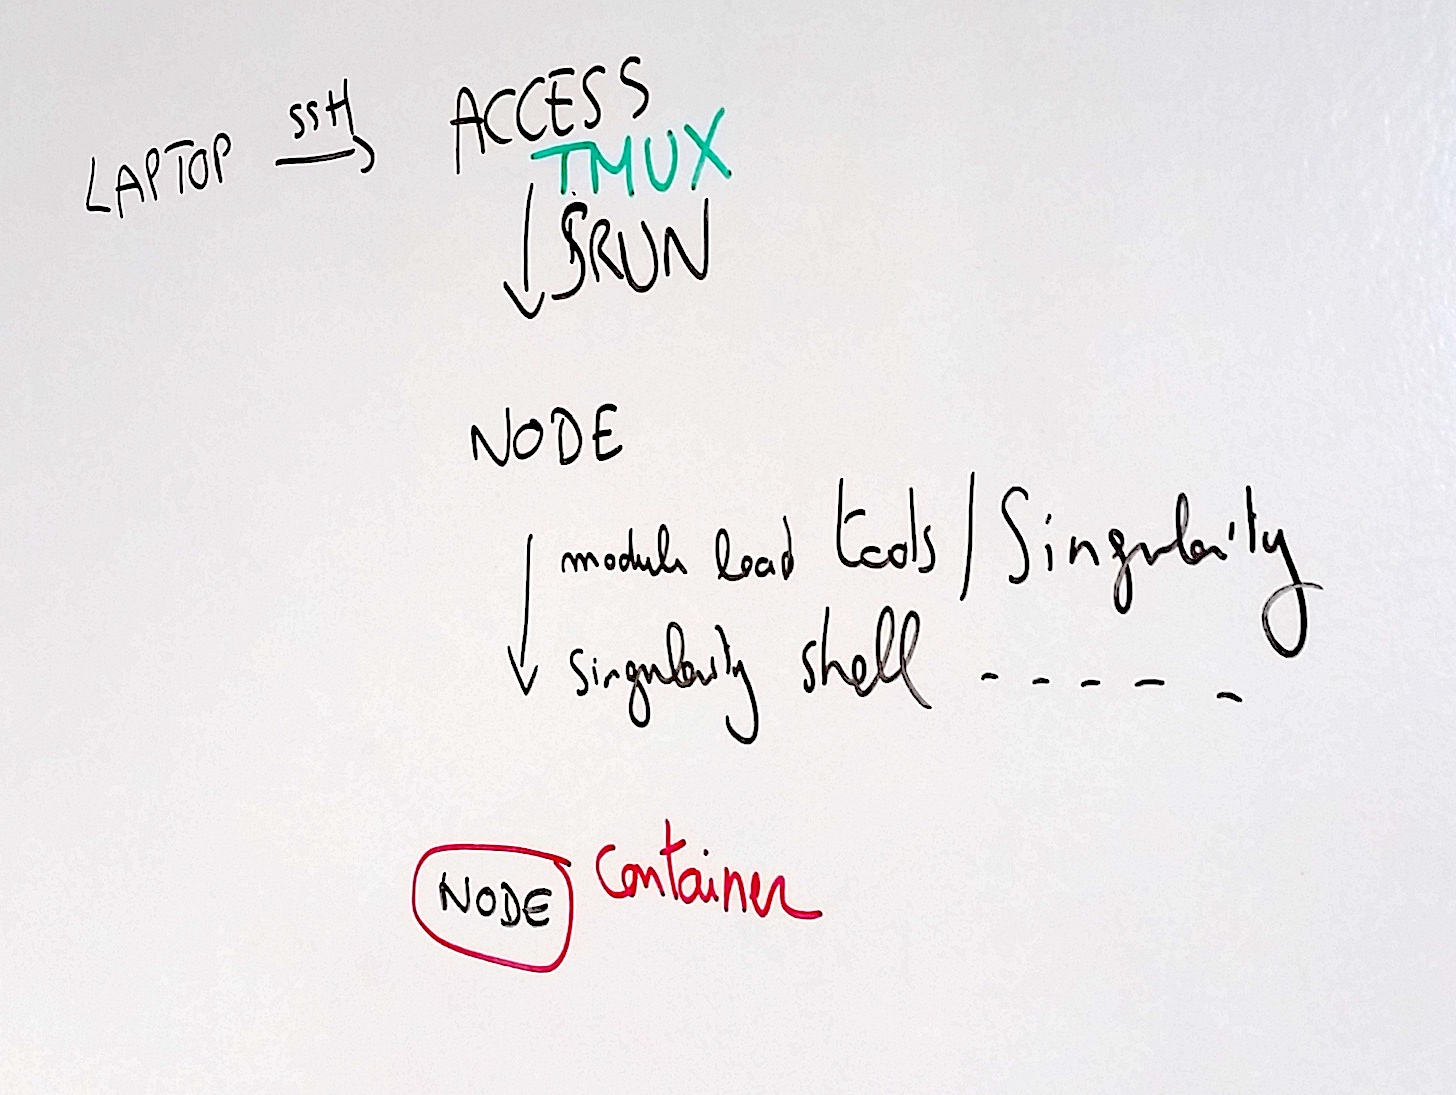 LAPTOP SSH ACCESS
TMUX
SRUN
NODE
module load tools/Singularity
singularity shell - - - - -
NODE Container